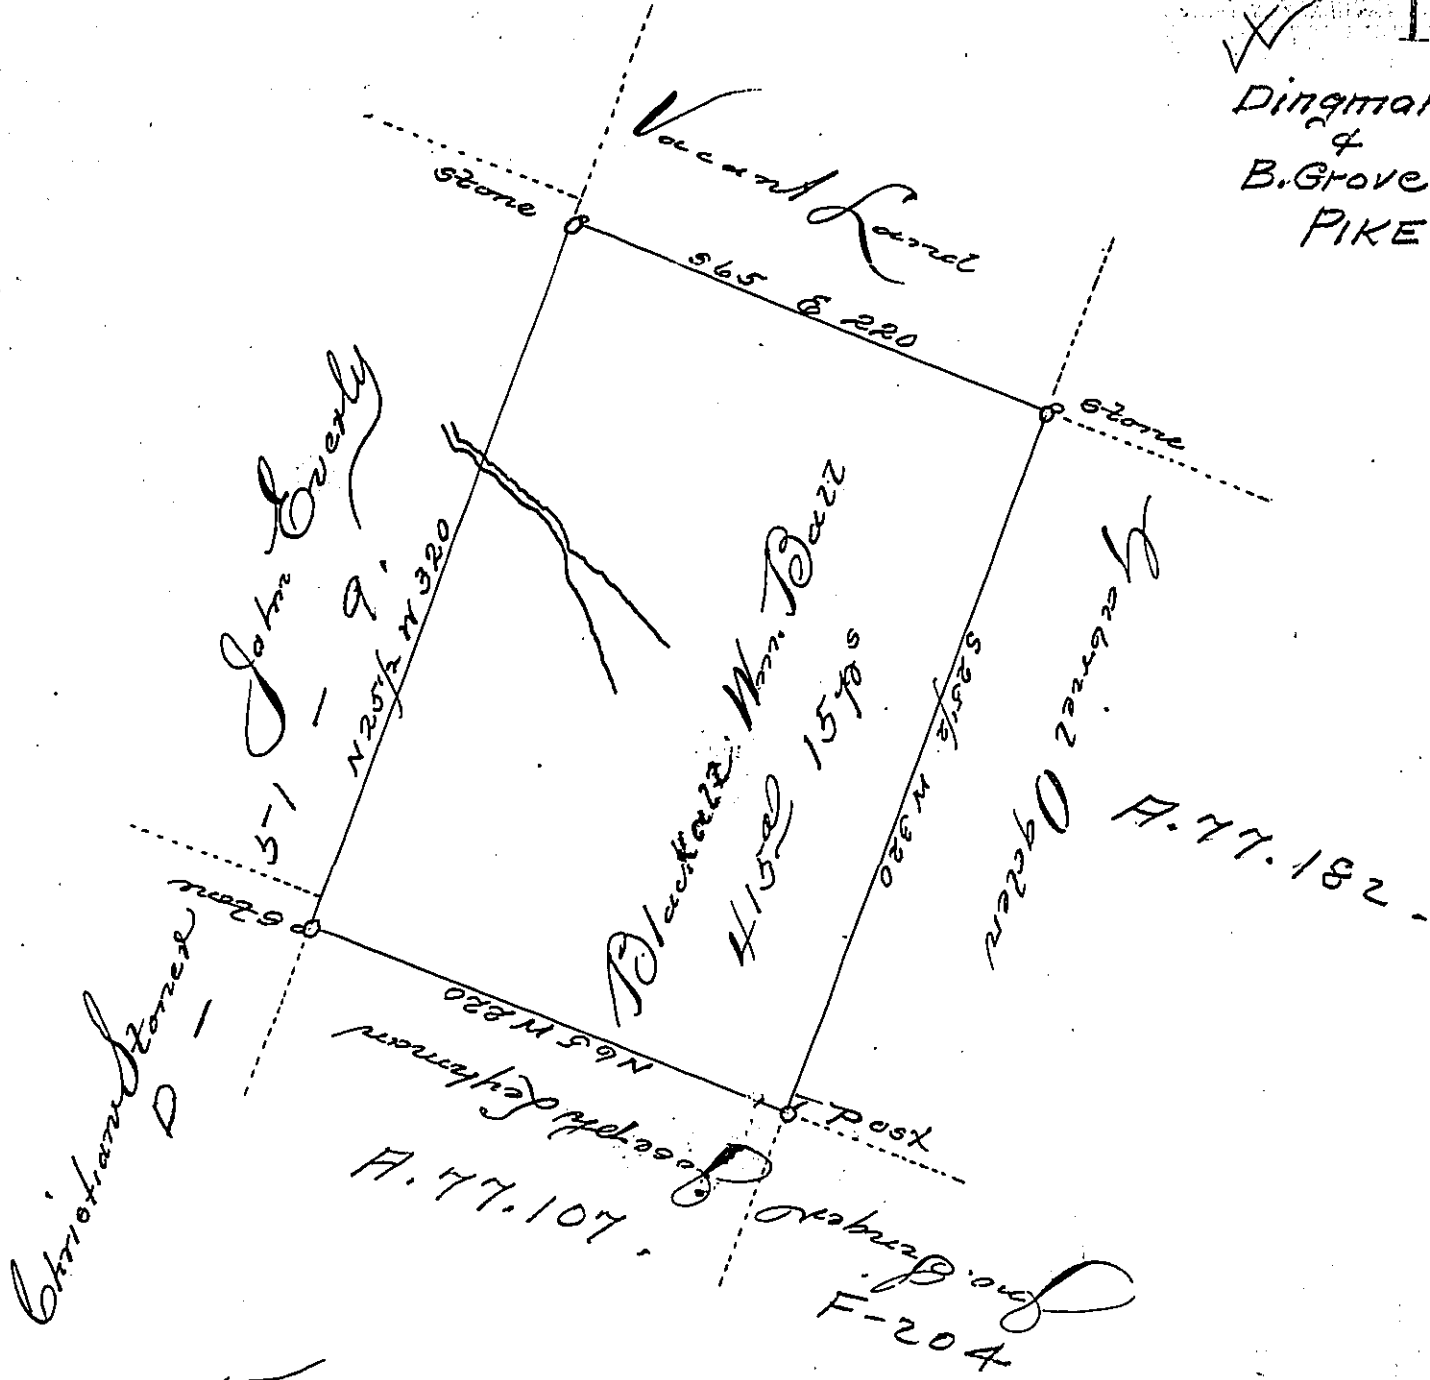 Dingman
&
B. Grove
PIKE
Vacant Land
stone
S 65 E 220
stone
John Everly
5-1 - 9.
N 25 1/2 W 320
Wm. Ball
415 a 15 ps
S 25 1/2 W 320
A. 77. 182.
stone
Christian Stoner
D -
N 65 W 220
Joseph Lehman
A. 77. 107.
Post
Jno. Singer
F-204